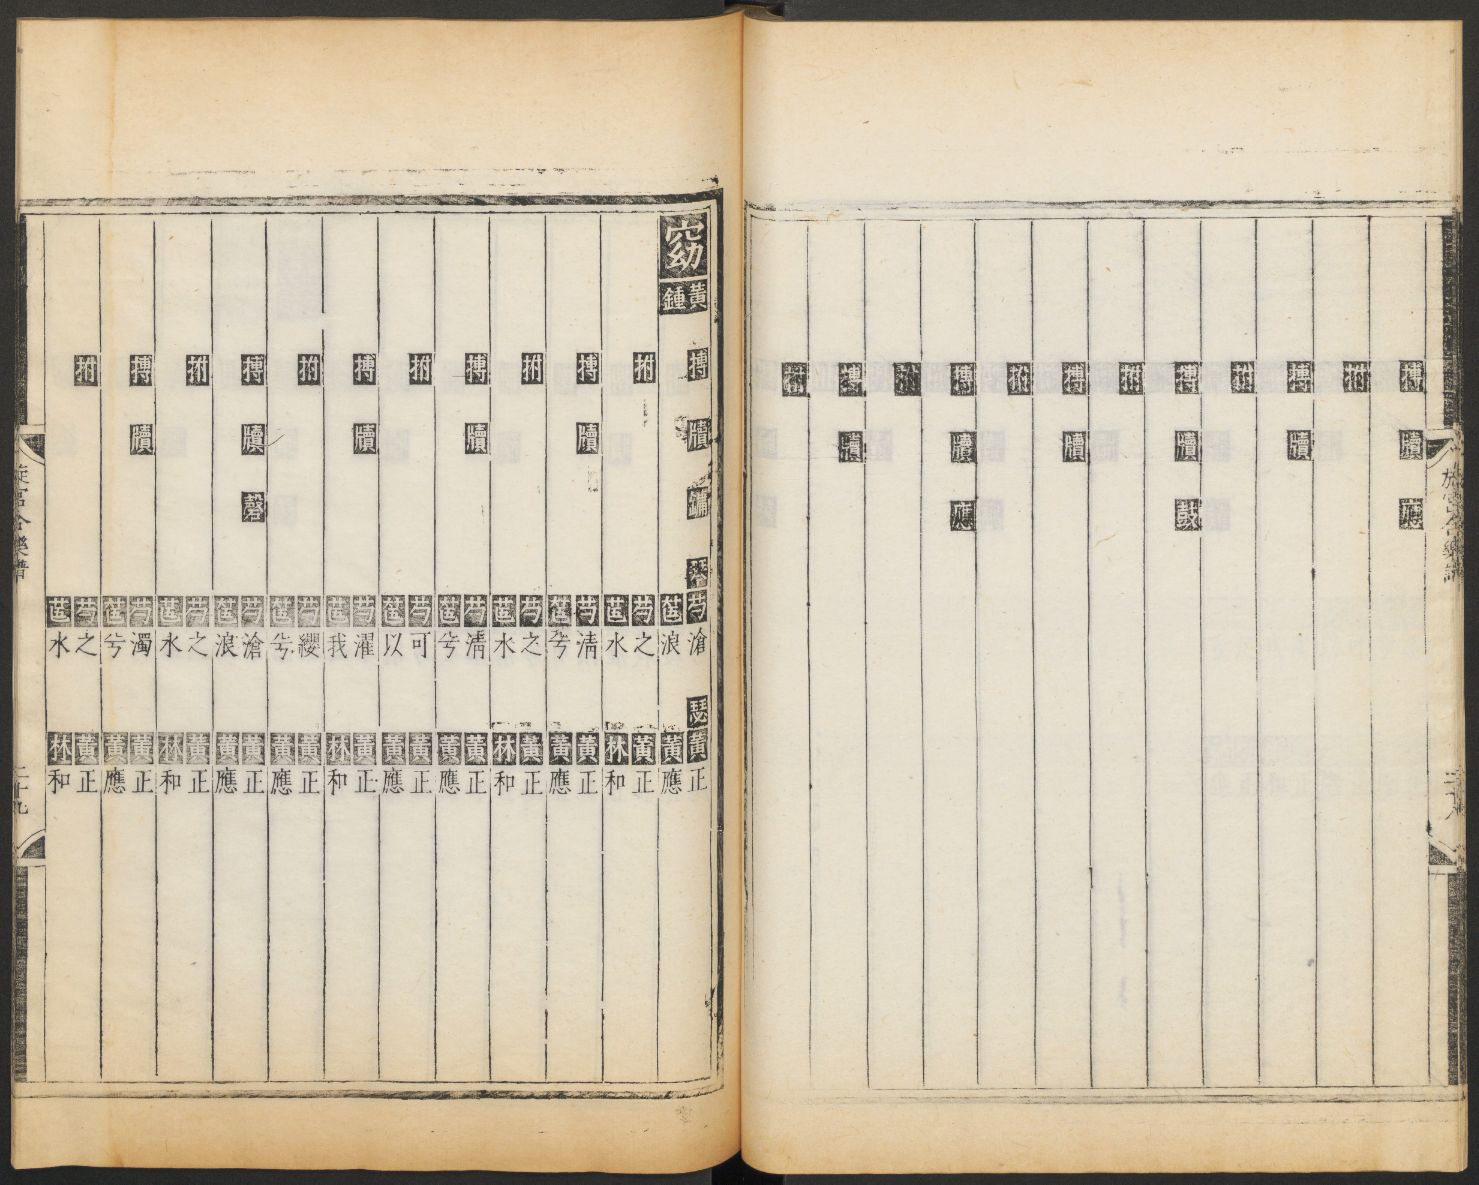 旋宮合樂譜 二十八
搏 牘 應
拊
搏 牘
拊
搏 牘 鼓
拊
搏 牘
拊
搏 牘 應
拊
搏 牘
拊
窈 黃鍾
搏 牘 鏞 琴 滄 瑟 黃 正
浪 黃 應
拊 之 黃 正
水 林 和
搏 牘 清 黃 正
兮 黃 應
拊 之 黃 正
水 林 和
搏 牘 清 黃 正
兮 黃 應
拊 可 黃 正
以 黃 應
搏 牘 濯 黃 正
我 林 和
拊 纓 黃 正
兮 黃 應
搏 牘 磬 滄 黃 正
浪 黃 應
拊 之 黃 正
水 林 和
搏 牘 濁 黃 正
兮 黃 應
拊 之 黃 正
水 林 和
旋宮合樂譜 二十九